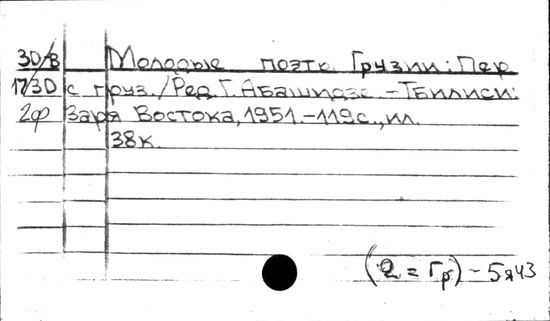 30/В Молодые поэты Грузии: Пер.
17/30 с груз./Ред. Г. Абашидзе. - Тбилиси:
2ф Заря Востока, 1951. - 119с., ил.
38к.
(2 = Гр) - 5я43